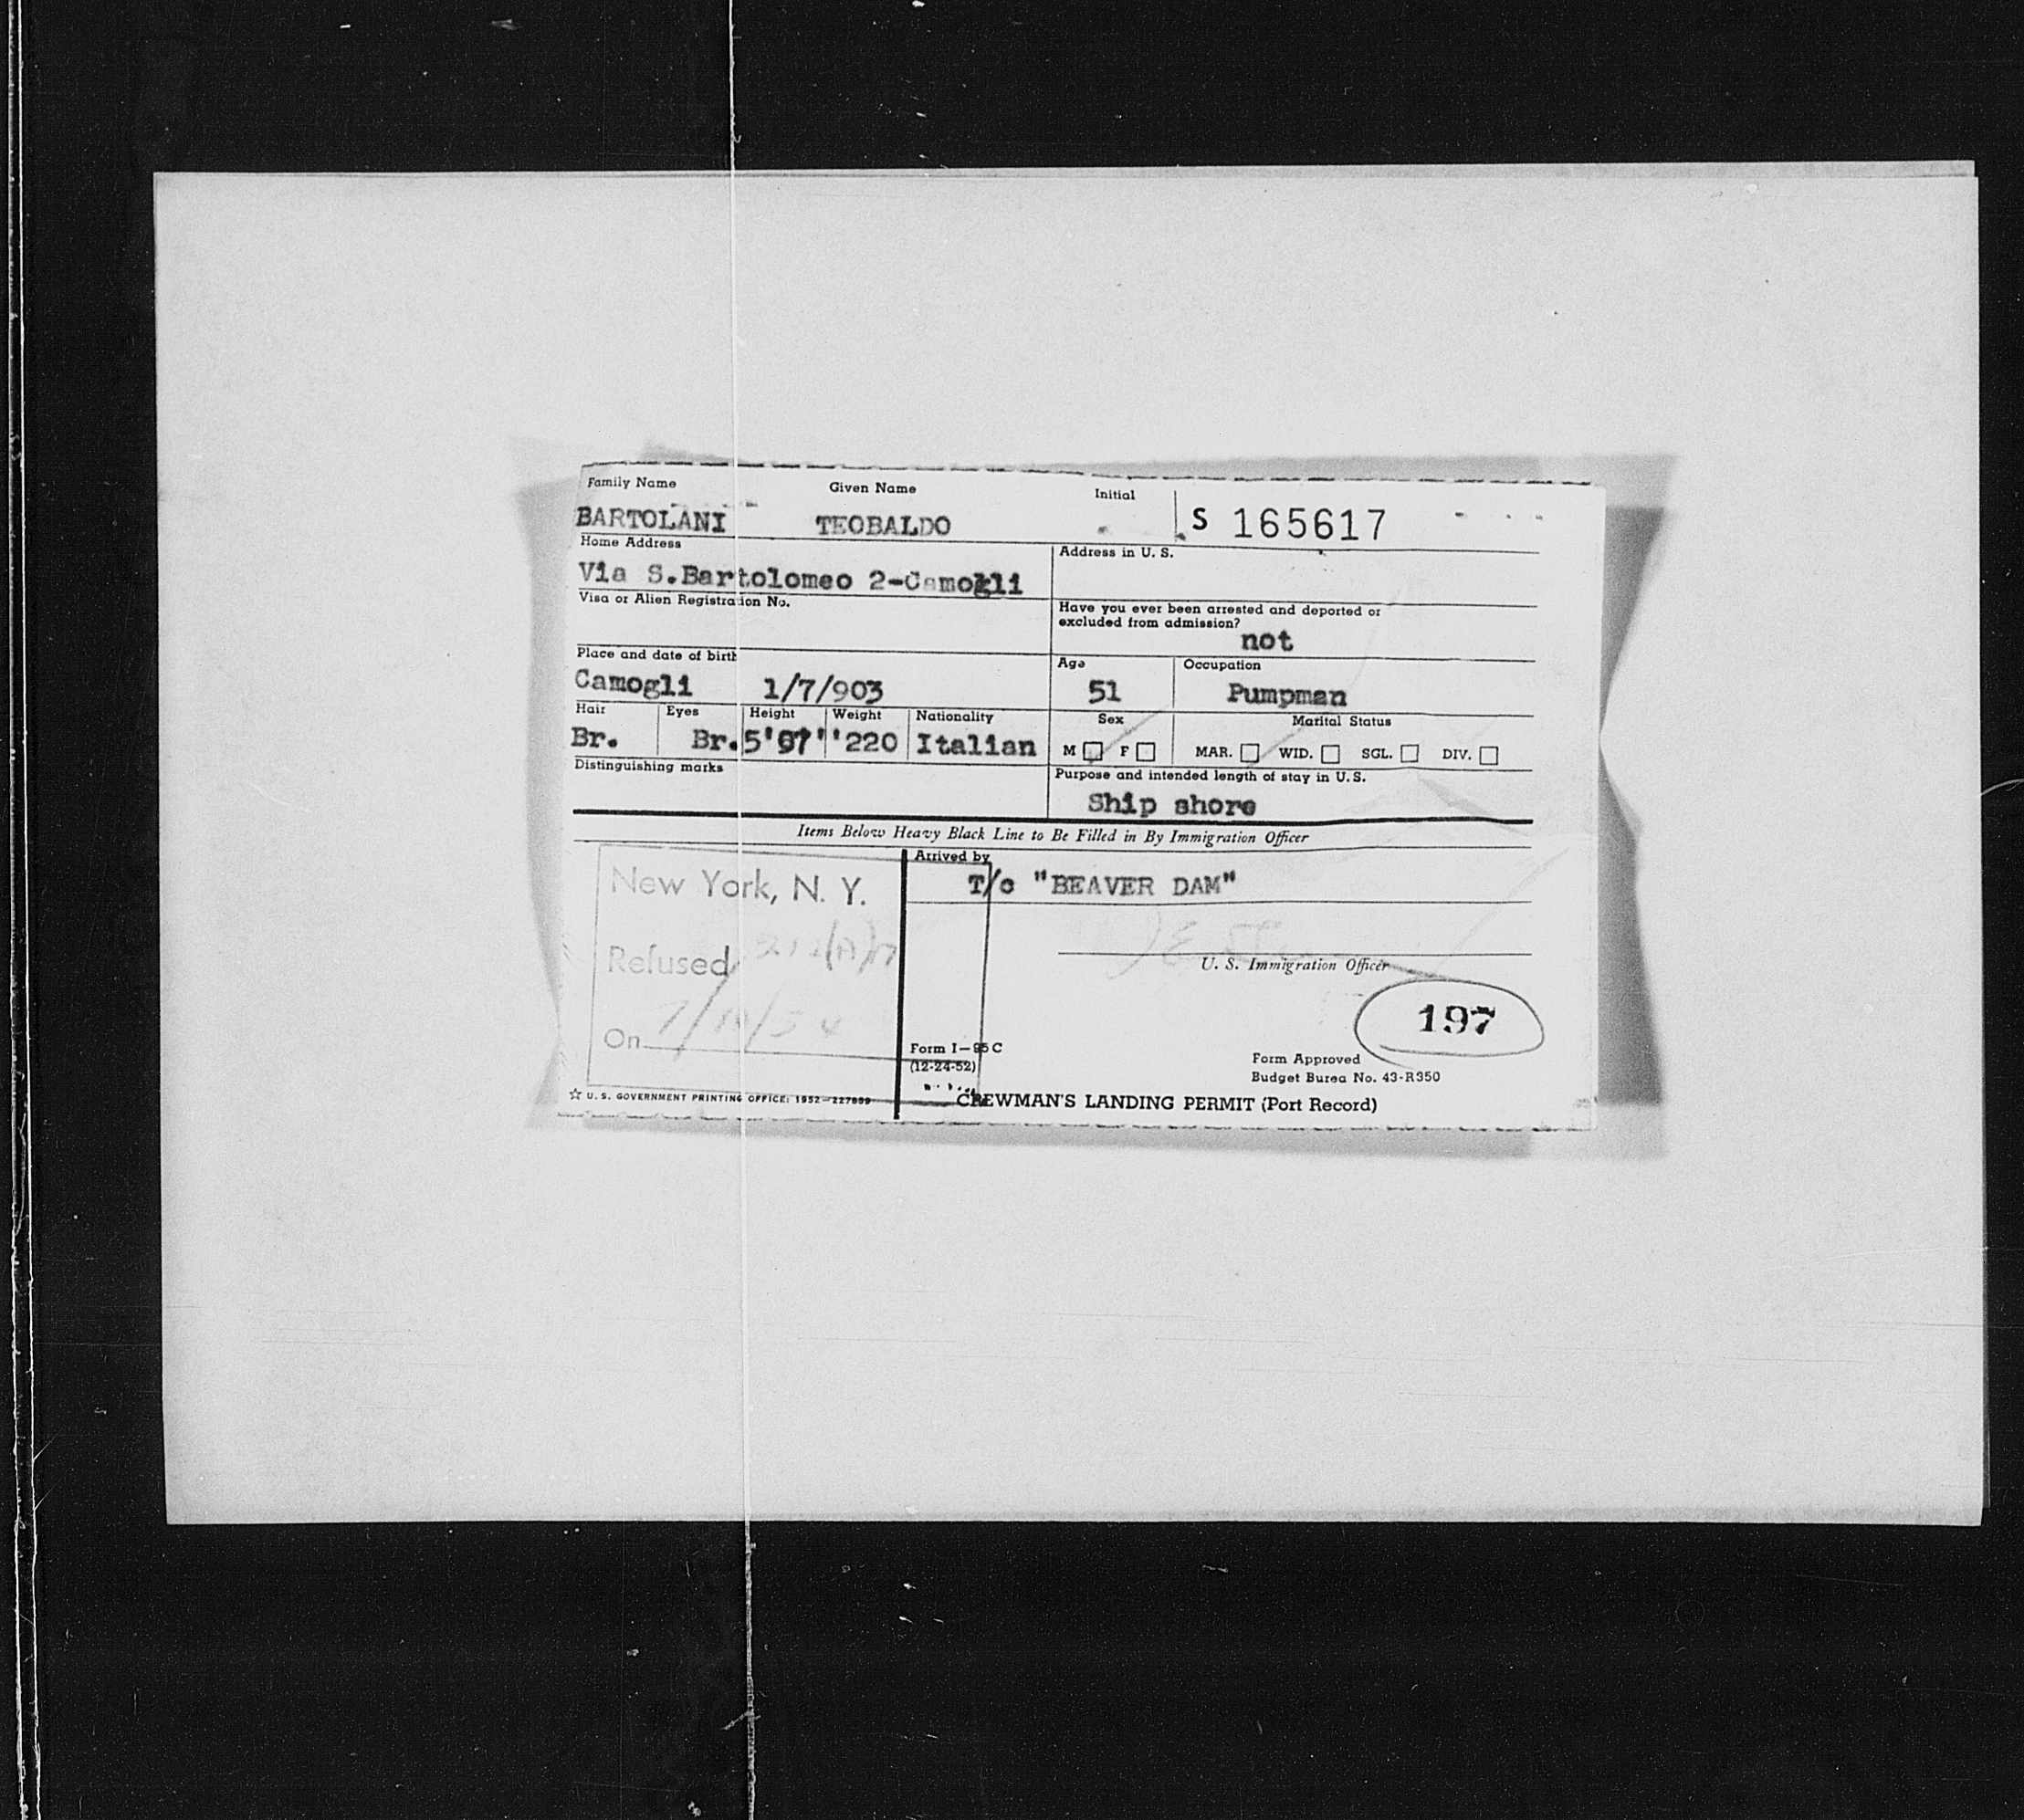 Family Name Given Name Initial
BARTOLANI TEOBALDO S 165617
Home Address Address in U. S.
Via S.Bartolomeo 2-Camogli
Visa or Alien Registration No. Have you ever been arrested and deported or
excluded from admission?
not
Place and date of birth Age Occupation
Camogli 1/7/903 51 Pumpman
Hair Eyes Height Weight Nationality Sex Marital Status
Br. Br. 220 Italian M F MAR. WID. SGL. DIV.
Distinguishing marks Purpose and intended length of stay in U.S.
Ship shore
Items Below Heavy Black Line to Be Filled in By Immigration Officer
Arrived by
New York, N. Y. T/c "BEAVER DAM"
Refused
U. S. Immigration Officer
197
On
Form I-95 C Form Approved
(12-24-52) Budget Burea No. 43-R350
☆ U. S. GOVERNMENT PRINTING OFFICE: 1952 CREWMAN'S LANDING PERMIT (Port Record)